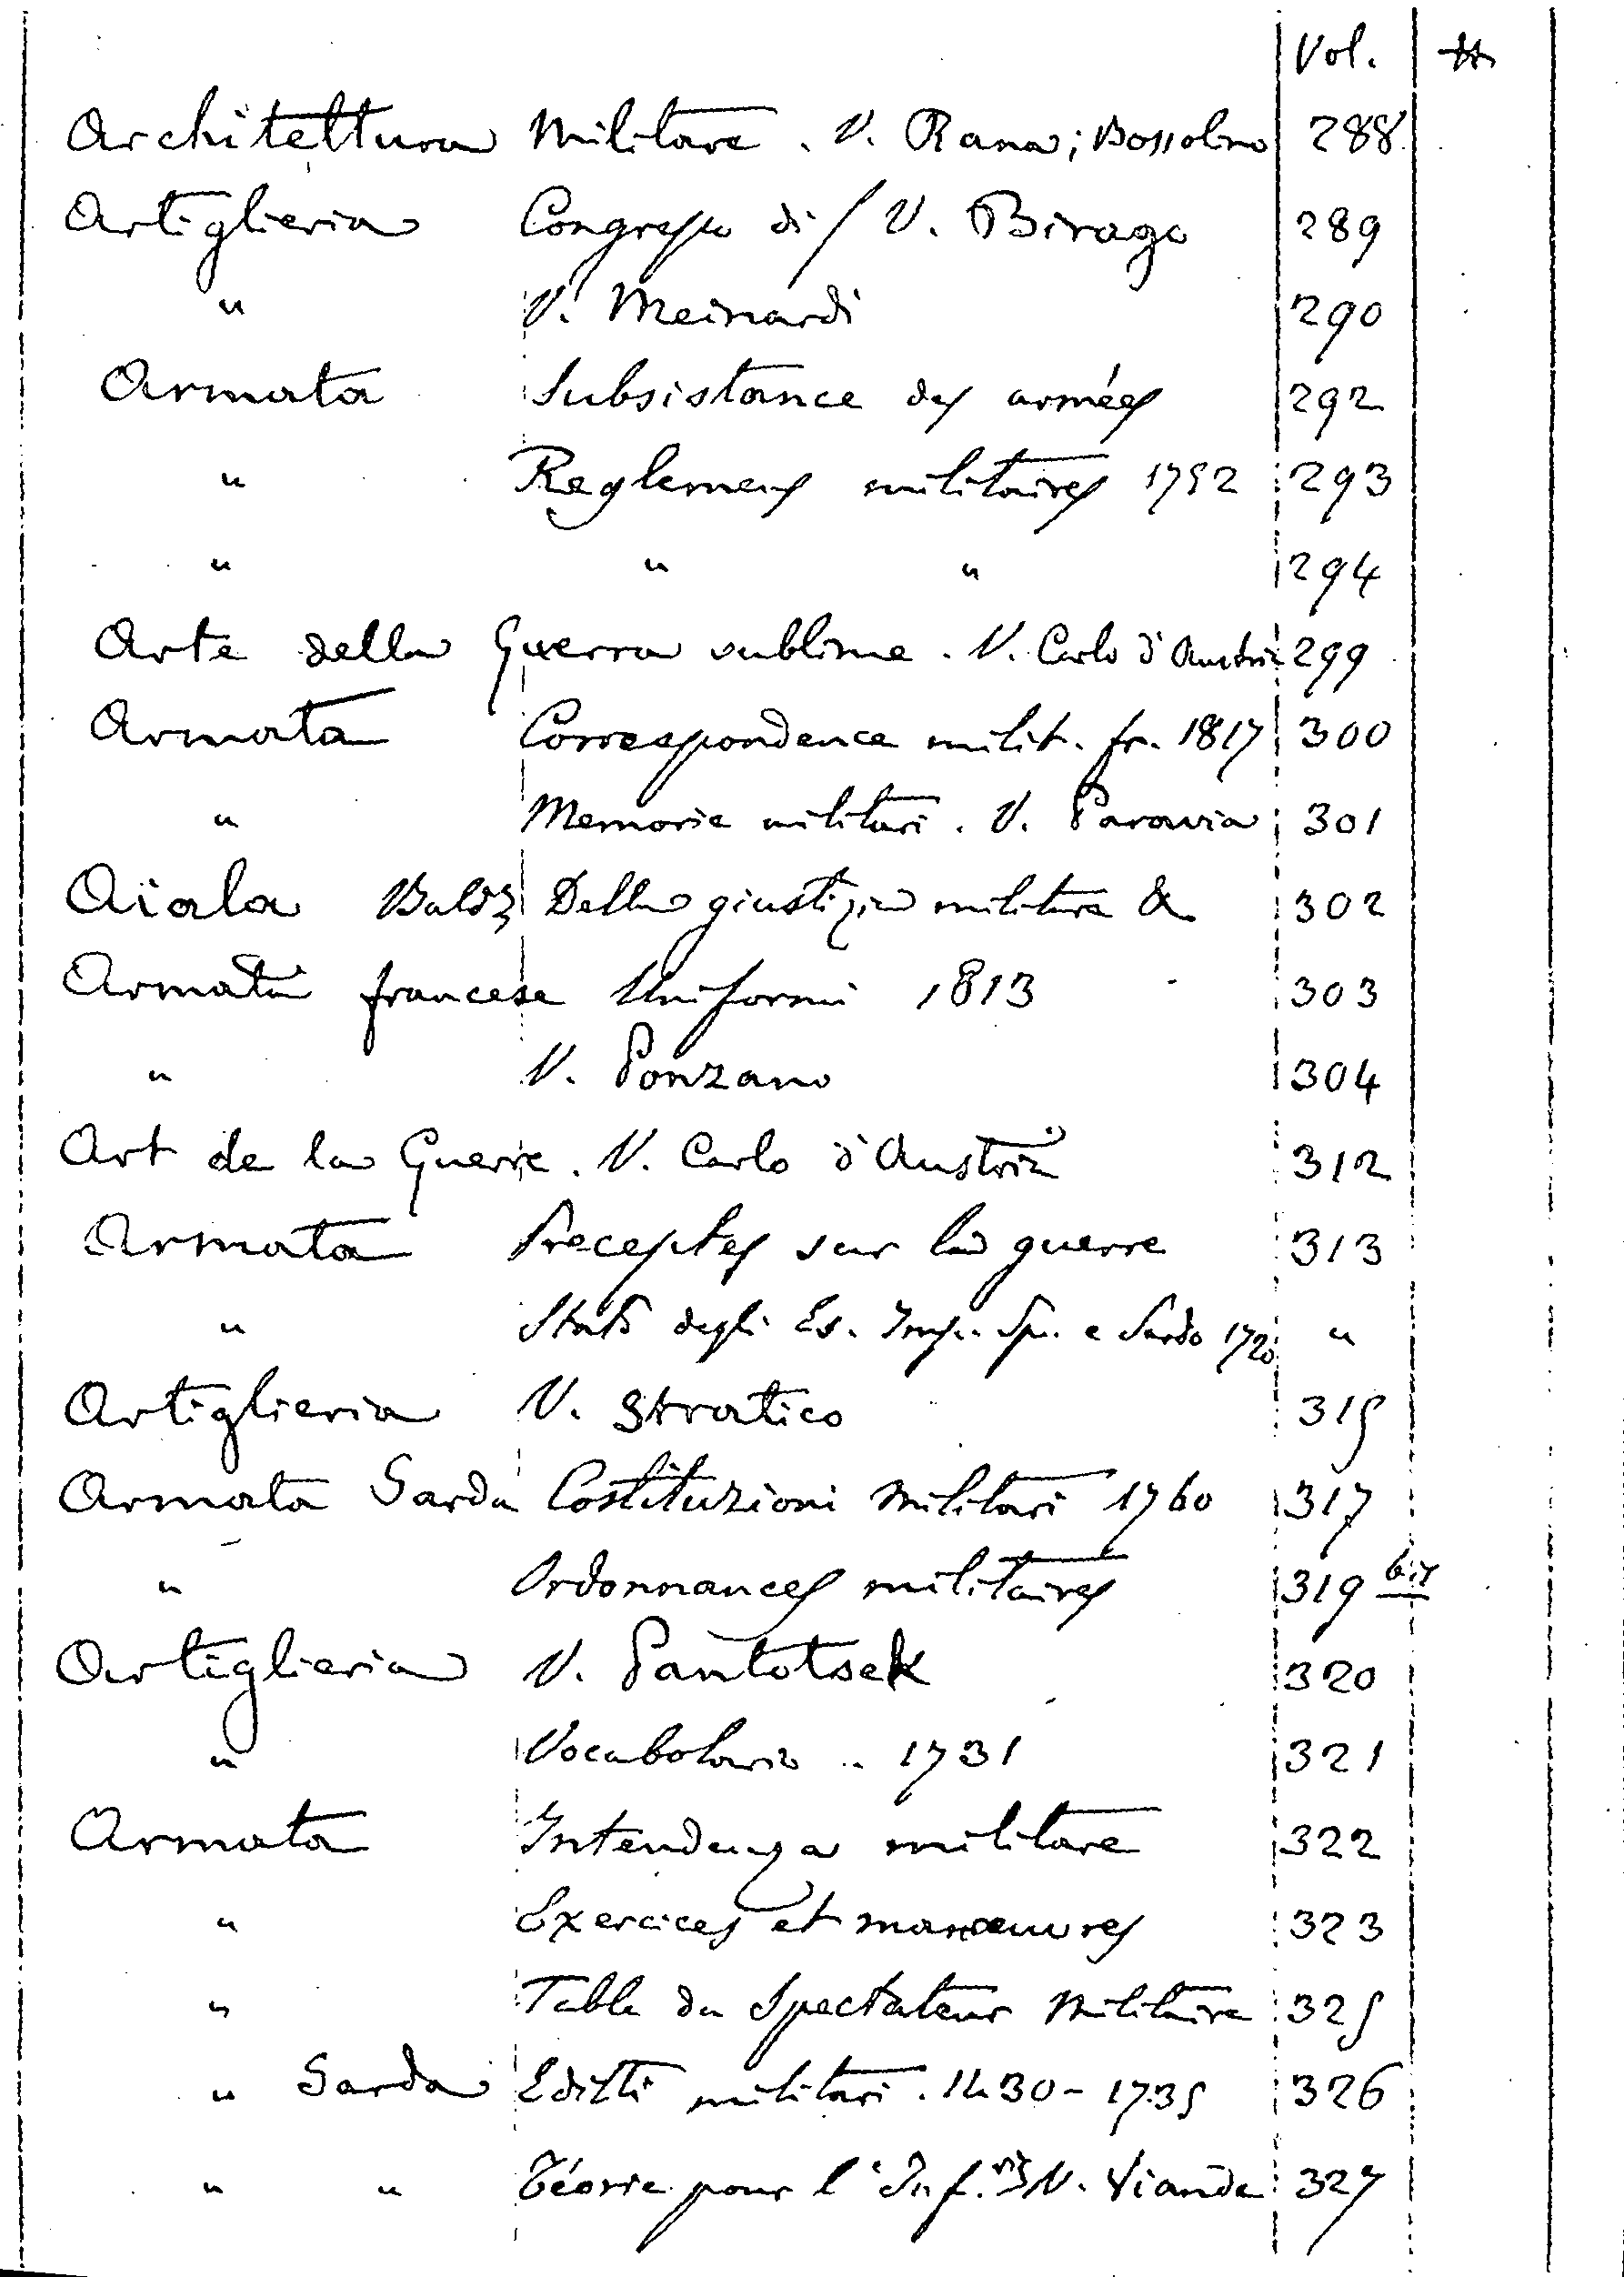 Vol.
Architettura Militare. V. Rana; Bossolino 288
Artiglieria Congresso di / V. Birago 289
" V. Meinardi 290
Armata Subsistance des armées 292
" Reglemens militaires 1792 293
" " " 294
Arte della Guerra sublime. V. Carlo d'Austria 299
Armata Correspondence milit. fr. 1817 300
" Memorie militari. V. Paravia 301
Aiala Baldz Della giustizia militare & 302
Armata francese Uniformi 1813 303
" V. Ponzano 304
Art de la Guerre. V. Carlo d'Austria 312
Armata Preceptes sur la guerre 313
" Stato degli Es. Imp. Sp. e Sardo 1720 "
Artiglieria V. Stratico 315
Armata Sarda Costituzioni Militari 1760 317
" Ordonnances militaires 319 bis
Artiglieria V. Pantotsek 320
" Vocabolario .. 1731 321
Armata Intendenza militare 322
" Exercices et manœuvres 323
" Table du Spectateur Militaire 325
" Sarda Editti militari. 1430-1735 326
" " Téorie pour l'Inf. V. Vianda 327